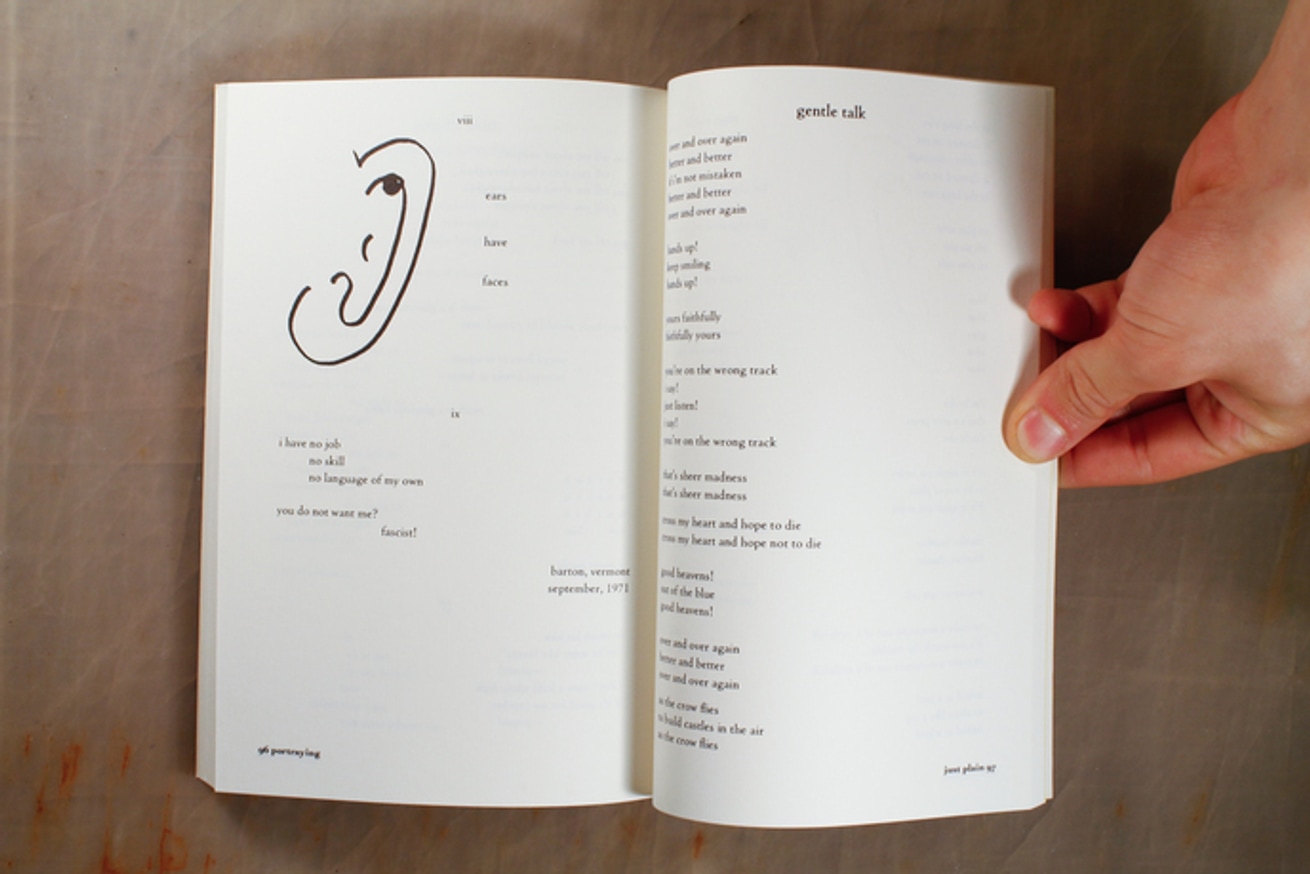 viii
ears
have
faces
ix
i have no job
no skill
no language of my own
you do not want me?
fascist!
barton, vermont
september, 1971
96 portraying
gentle talk
over and over again
better and better
if i'm not mistaken
better and better
over and over again
hands up!
keep smiling
hands up!
yours faithfully
faithfully yours
you're on the wrong track
i say!
just listen!
i say!
you're on the wrong track
that's sheer madness
that's sheer madness
cross my heart and hope to die
cross my heart and hope not to die
good heavens!
out of the blue
good heavens!
over and over again
better and better
over and over again
as the crow flies
to build castles in the air
as the crow flies
just plain 97